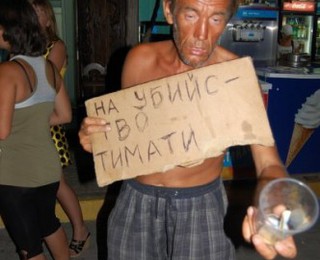 НА УБИЙС-
ТВО
ТИМАТИ